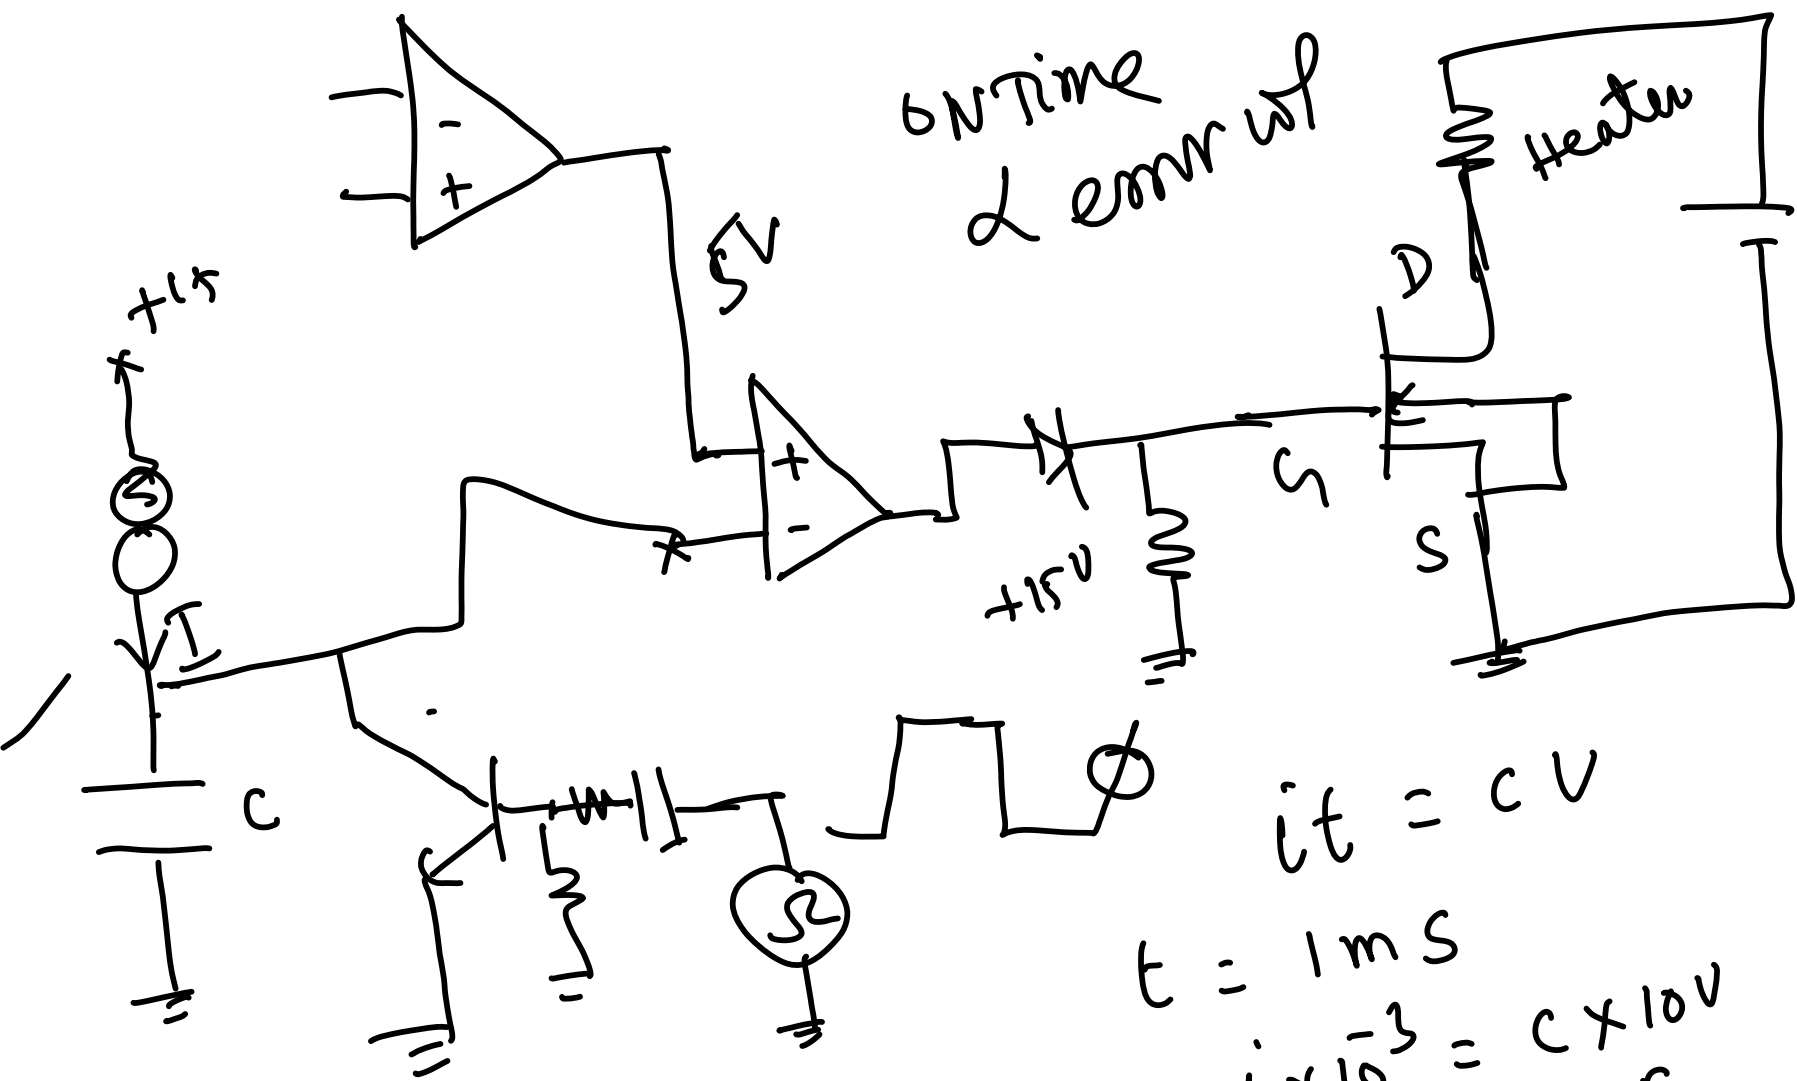 ON Time
α error vol
Heater
-
+
+15
5V
D
+
-
G
S
+15V
I
C
it = CV
t = 1ms
i×10⁻³ = C×10V